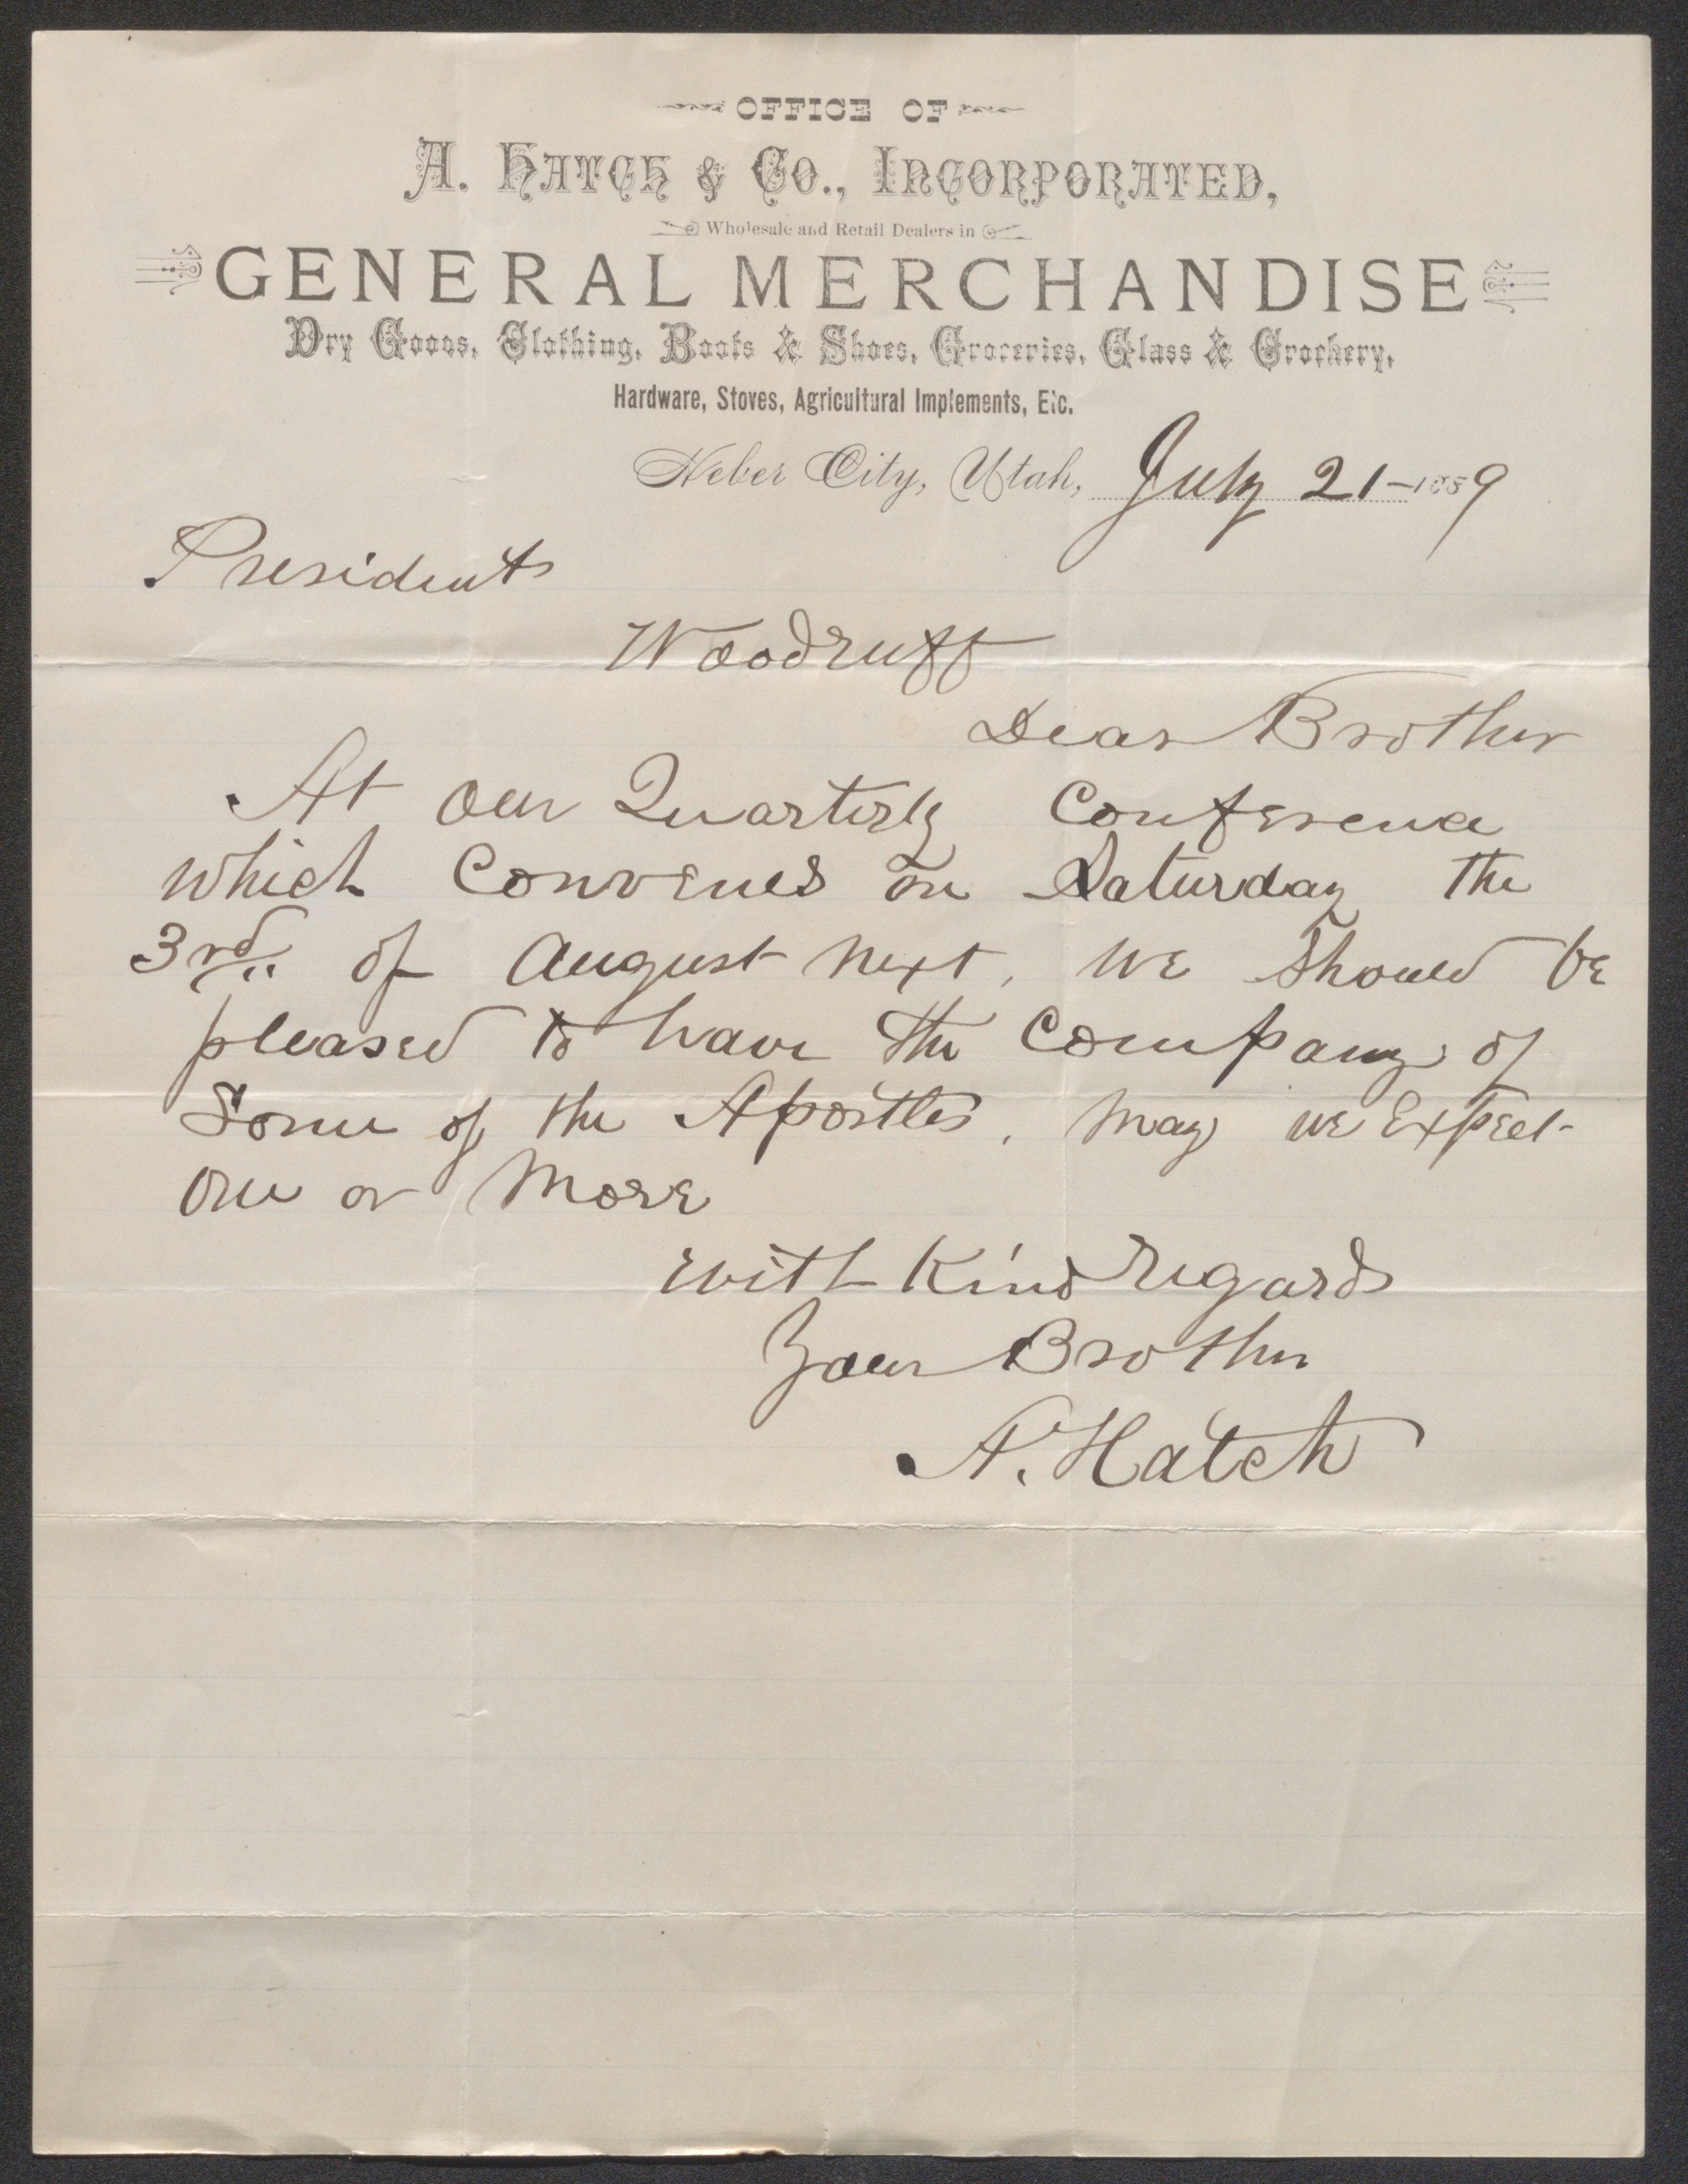 OFFICE OF
A. HATCH & CO., INCORPORATED,
Wholesale and Retail Dealers in
GENERAL MERCHANDISE
Dry Goods, Clothing, Boots & Shoes, Groceries, Glass & Crockery,
Hardware, Stoves, Agricultural Implements, Etc.
Heber City, Utah, July 21-1889
President
Woodruff
Dear Brother
At our Quarterly Conference
which Convenes on Saturday the
3rd of August next, we should be
pleased to have the Company of
Some of the Apostles, may we Expect
one or more
with Kind regards
Your Brother
A. Hatch